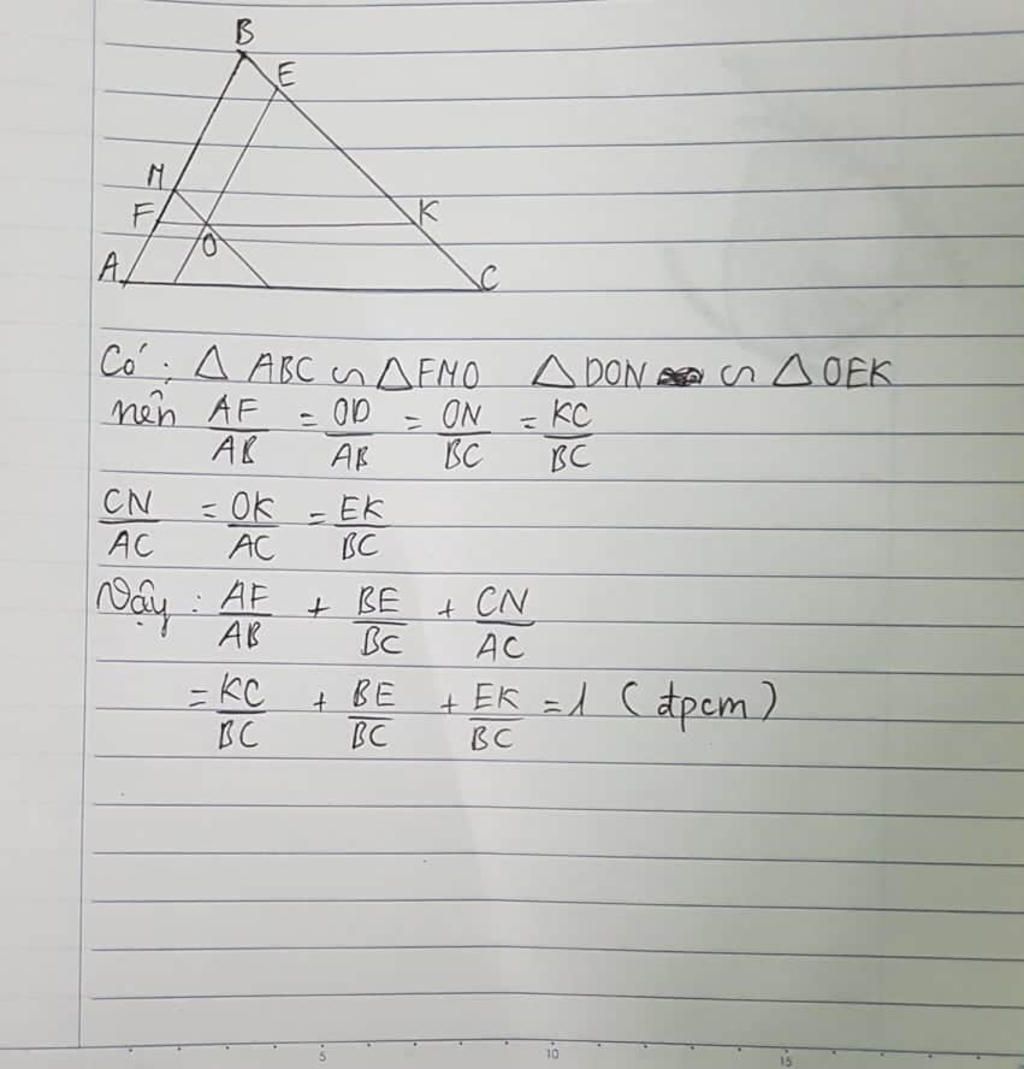 B
E
M
F
K
O
A
C
Có : △ ABC ∽ △FMO △DON ∽ △OEK
nên AF/AB = OD/AB = ON/BC = KC/BC
CN/AC = OK/AC = EK/BC
Vậy : AF/AB + BE/BC + CN/AC
= KC/BC + BE/BC + EK/BC = 1 (đpcm)
5 10 15